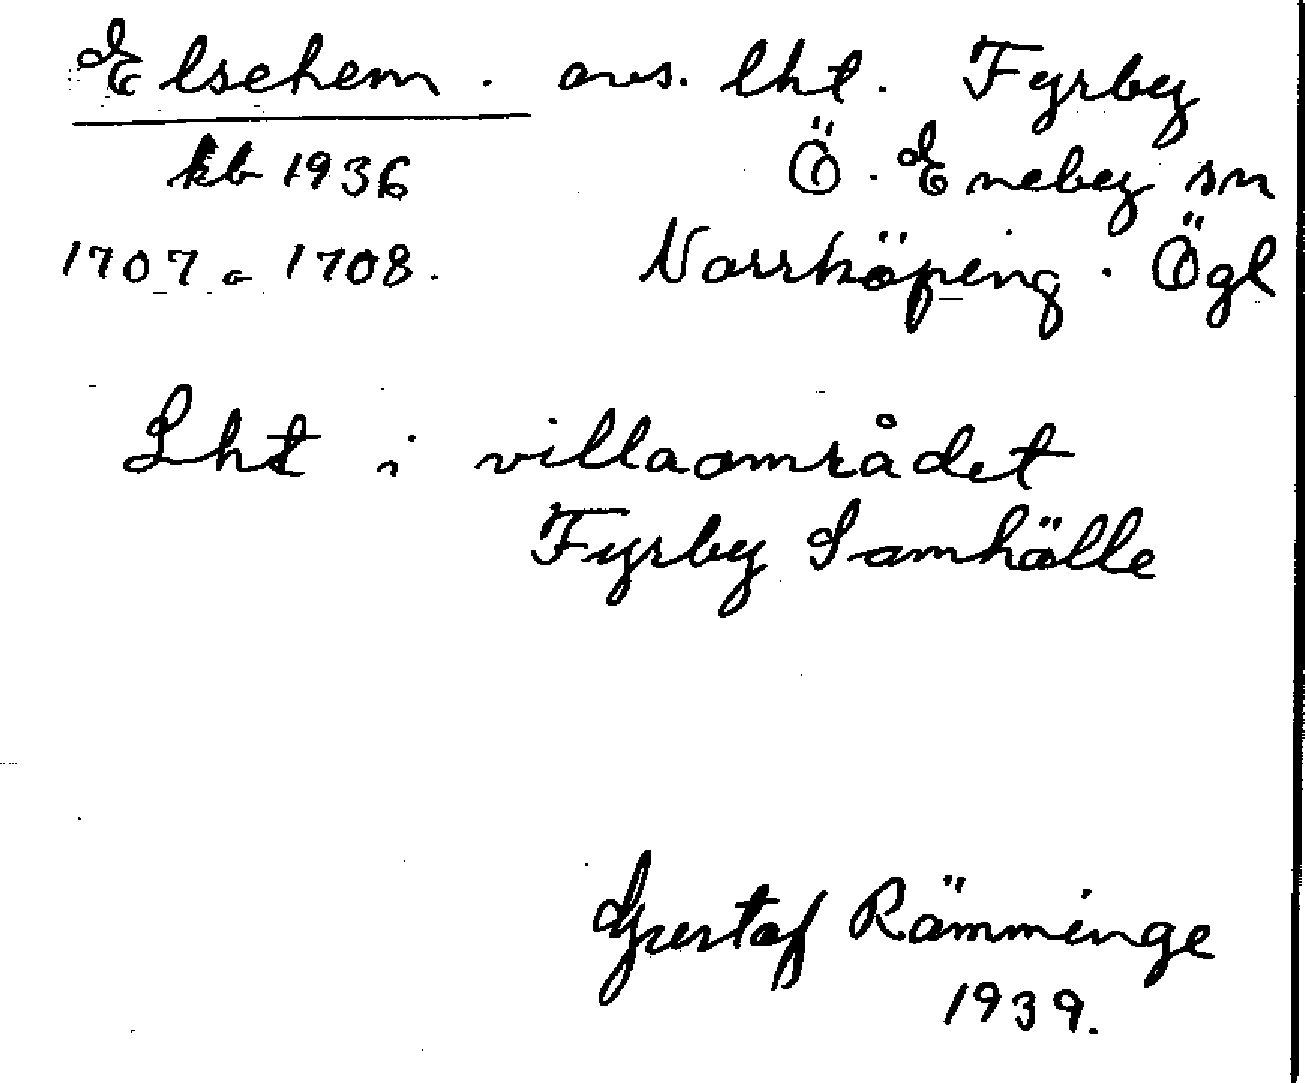 Elsehem. avs. lht. Fyrby
kb 1936 Ö. Eneby sn
1707 o 1708. Norrköping. Ögl
Lht i villaområdet
Fyrby Samhälle
Gustaf Rämminge
1939.